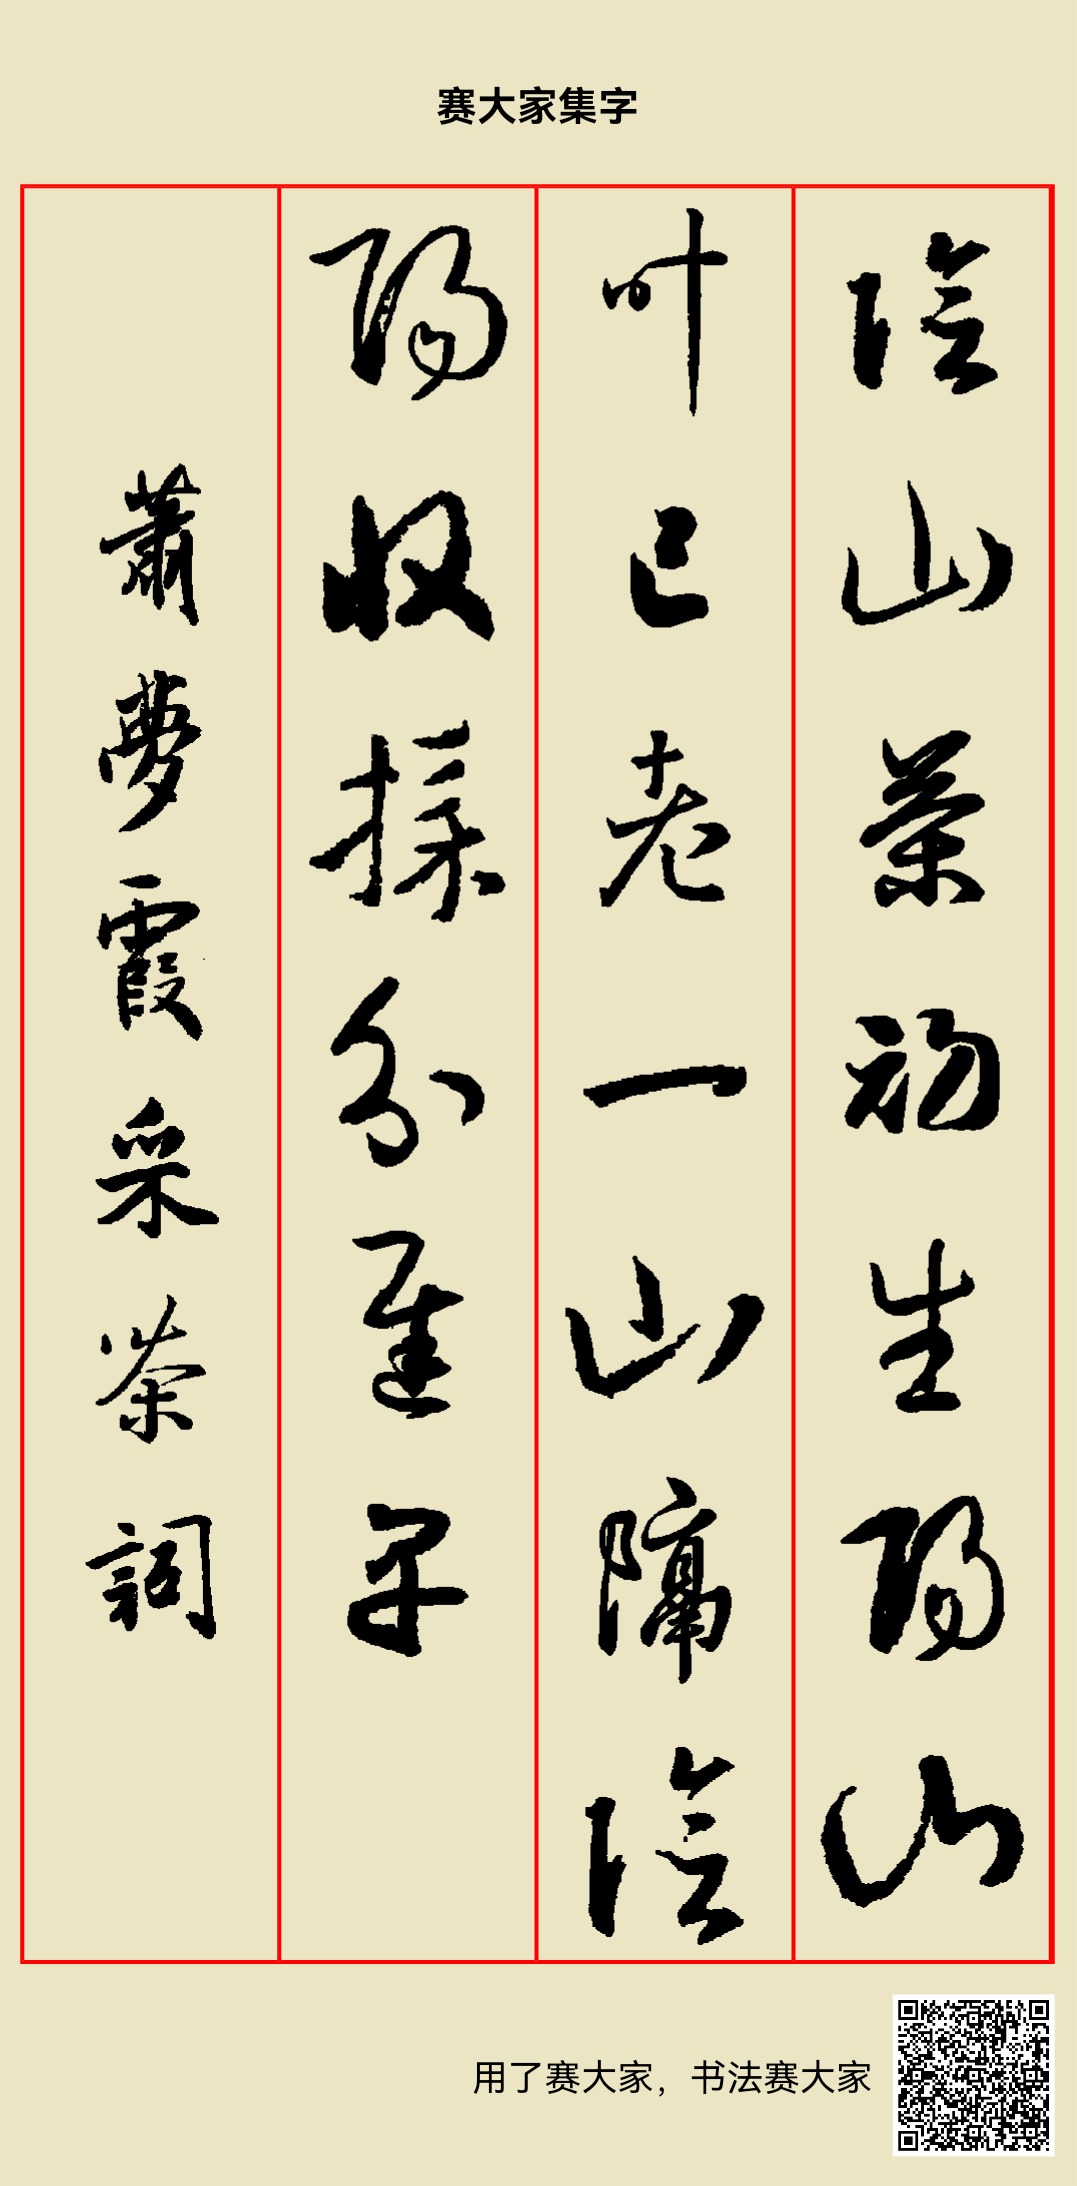 赛大家集字
陰山茶初生陽山
叶已老一山隔陰
陽收採分遲早
蕭夢霞采茶詞
用了赛大家，书法赛大家